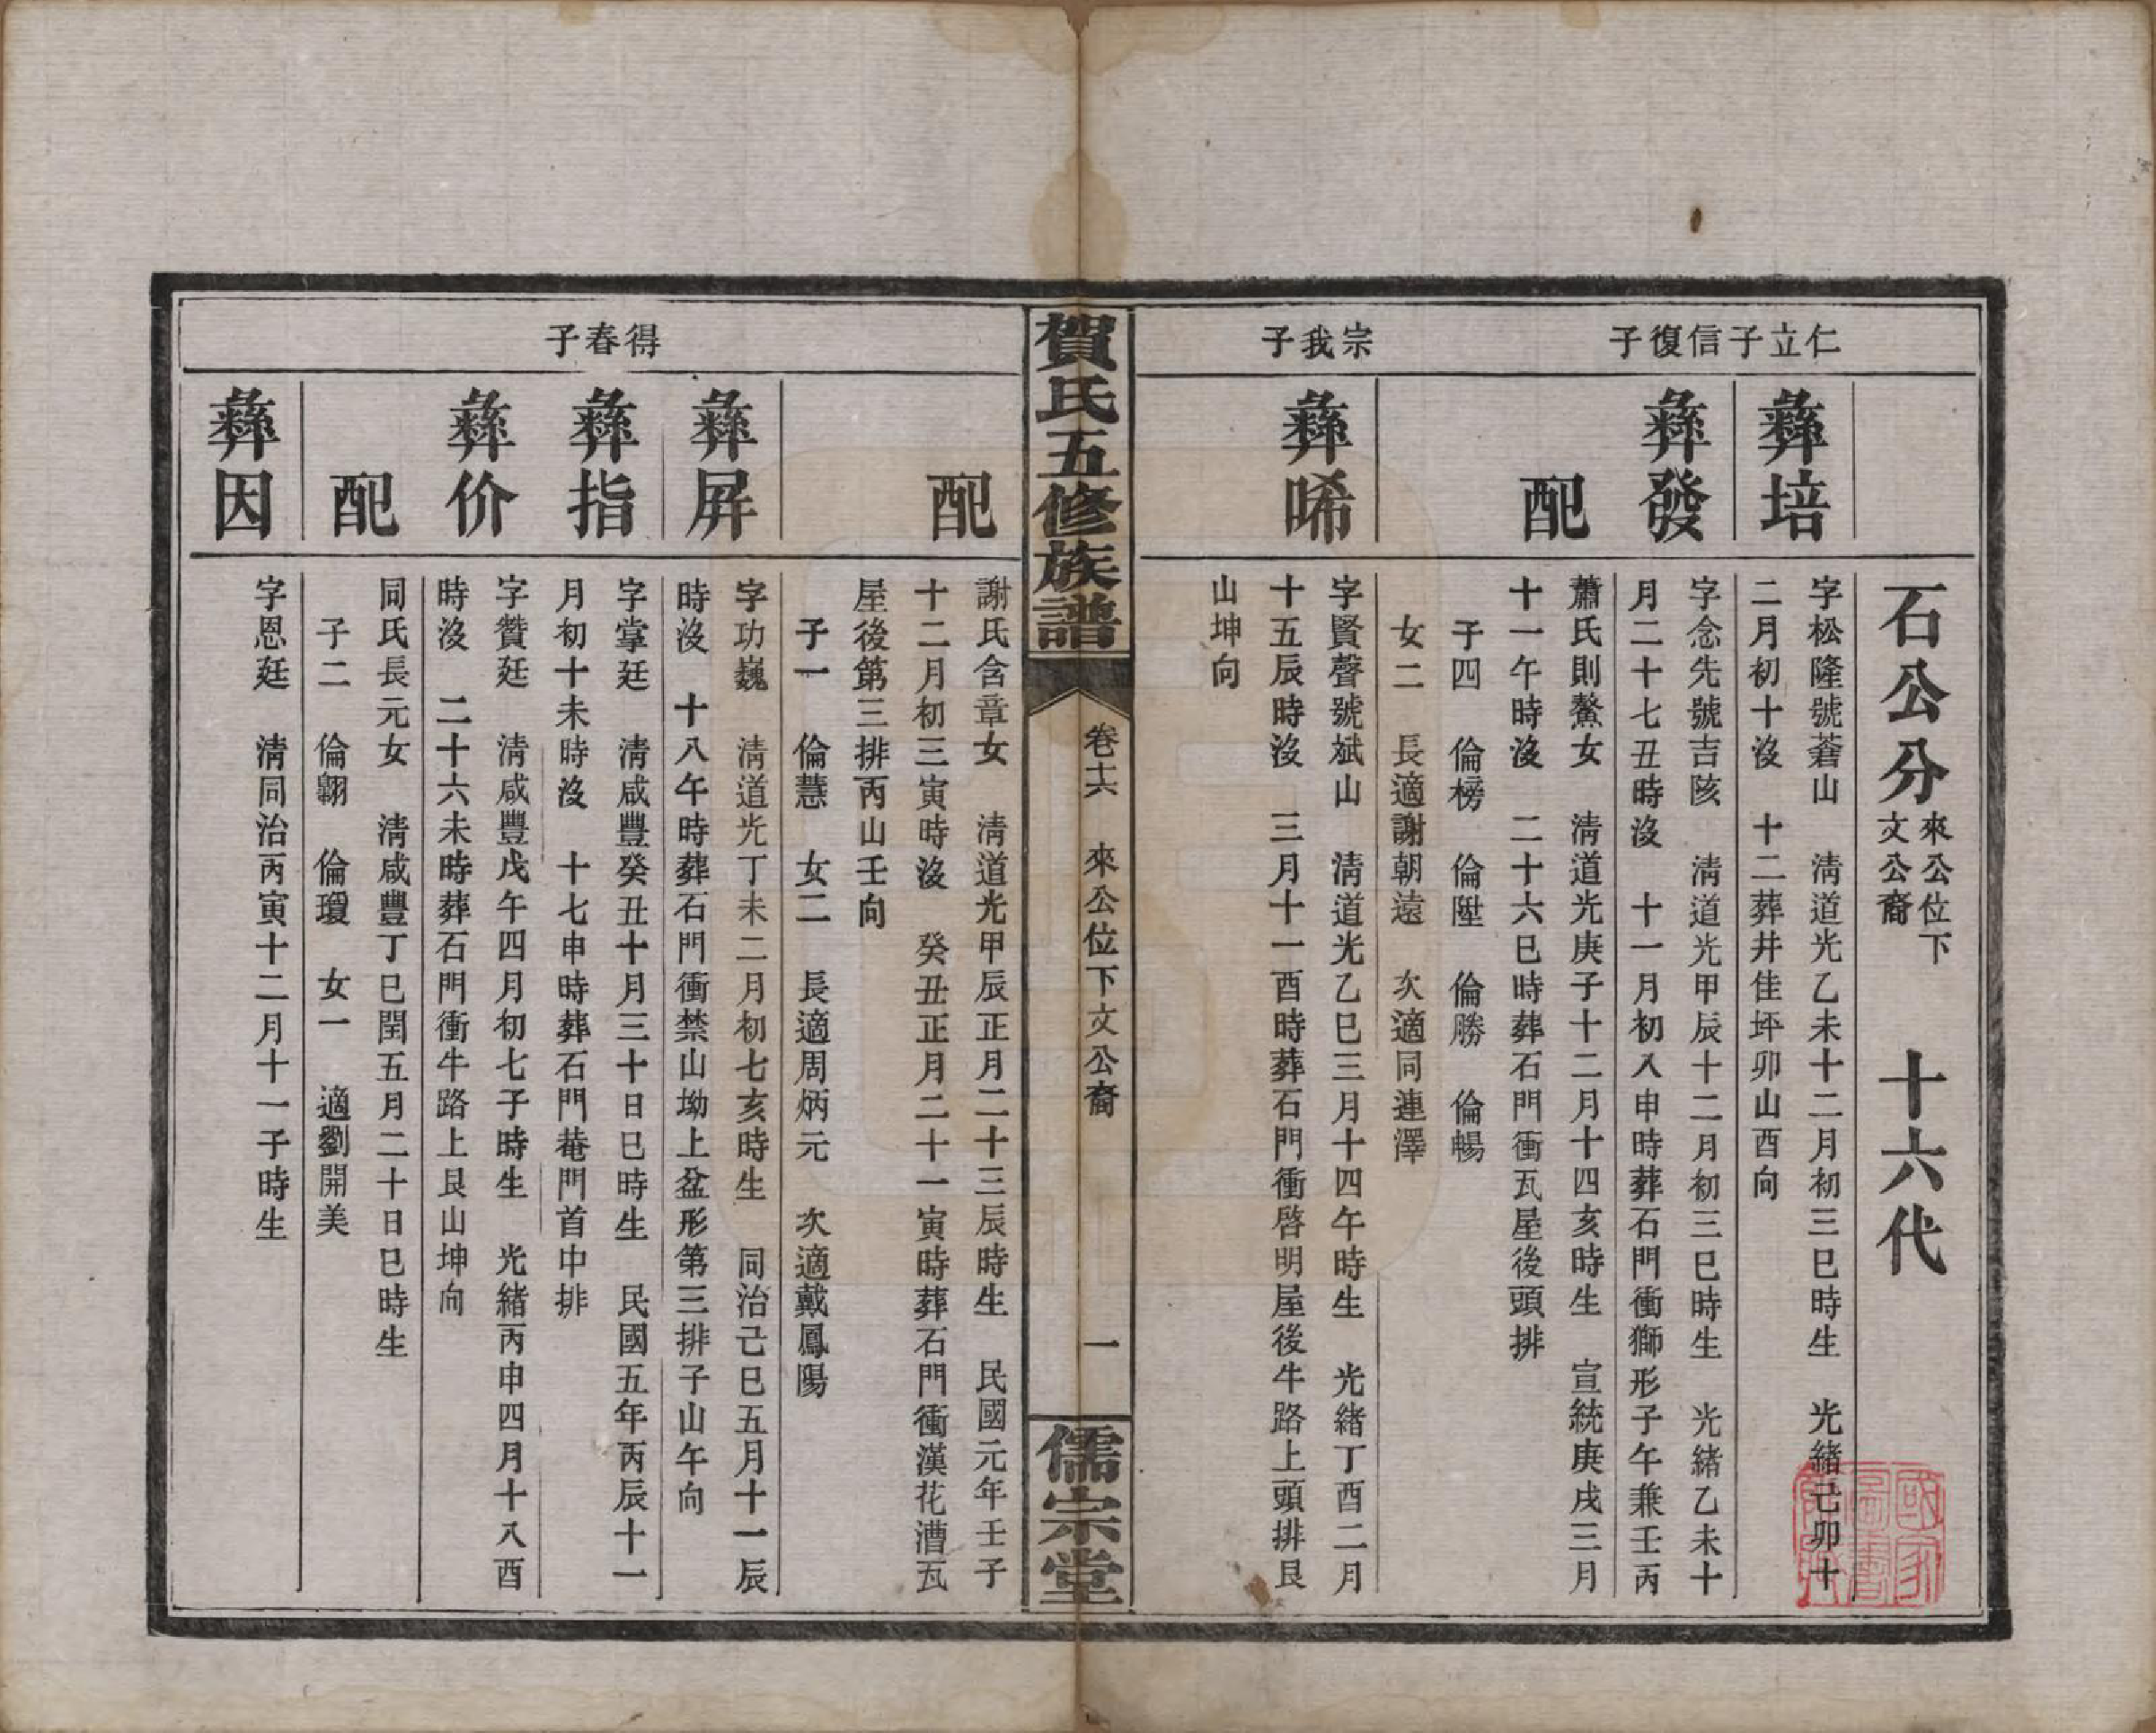 石公分 來公位下 文公裔 十六代
仁立子
彝培
字松隆號蒼山 淸道光乙未十二月初三巳時生 光緒己卯十
二月初十沒 十二葬井佳坪卯山酉向
信復子
彝發
字念先號吉陔 淸道光甲辰十二月初三巳時生 光緒乙未十
月二十七丑時沒 十一月初八申時葬石門衝獅形子午兼壬丙
配
蕭氏則鰲女 淸道光庚子十二月十四亥時生 宣統庚戌三月
十一午時沒 二十六巳時葬石門衝瓦屋後頭排
子四 倫榜 倫陞 倫勝 倫暢
女二 長適謝朝遠 次適同連澤
宗我子
彝唏
字賢聲號斌山 淸道光乙巳三月十四午時生 光緒丁酉二月
十五辰時沒 三月十一酉時葬石門衝啓明屋後牛路上頭排艮
山坤向
賀氏五修族譜
卷十六 來公位下文公裔 一
儒宗堂
配
謝氏含章女 淸道光甲辰正月二十三辰時生 民國元年壬子
十二月初三寅時沒 癸丑正月二十一寅時葬石門衝漢花漕瓦
屋後第三排丙山壬向
子一 倫慧 女二 長適周炳元 次適戴鳳陽
得春子
彝屏
字功巍 淸道光丁未二月初七亥時生 同治己巳五月十一辰
時沒 十八午時葬石門衝禁山坳上盆形第三排子山午向
彝指
字掌廷 淸咸豐癸丑十月三十日巳時生 民國五年丙辰十一
月初十未時沒 十七申時葬石門菴門首中排
彝价
字贊廷 淸咸豐戊午四月初七子時生 光緒丙申四月十八酉
時沒 二十六未時葬石門衝牛路上艮山坤向
配
同氏長元女 淸咸豐丁巳閏五月二十日巳時生
子二 倫翺 倫瓊 女一 適劉開美
彝因
字恩廷 淸同治丙寅十二月十一子時生